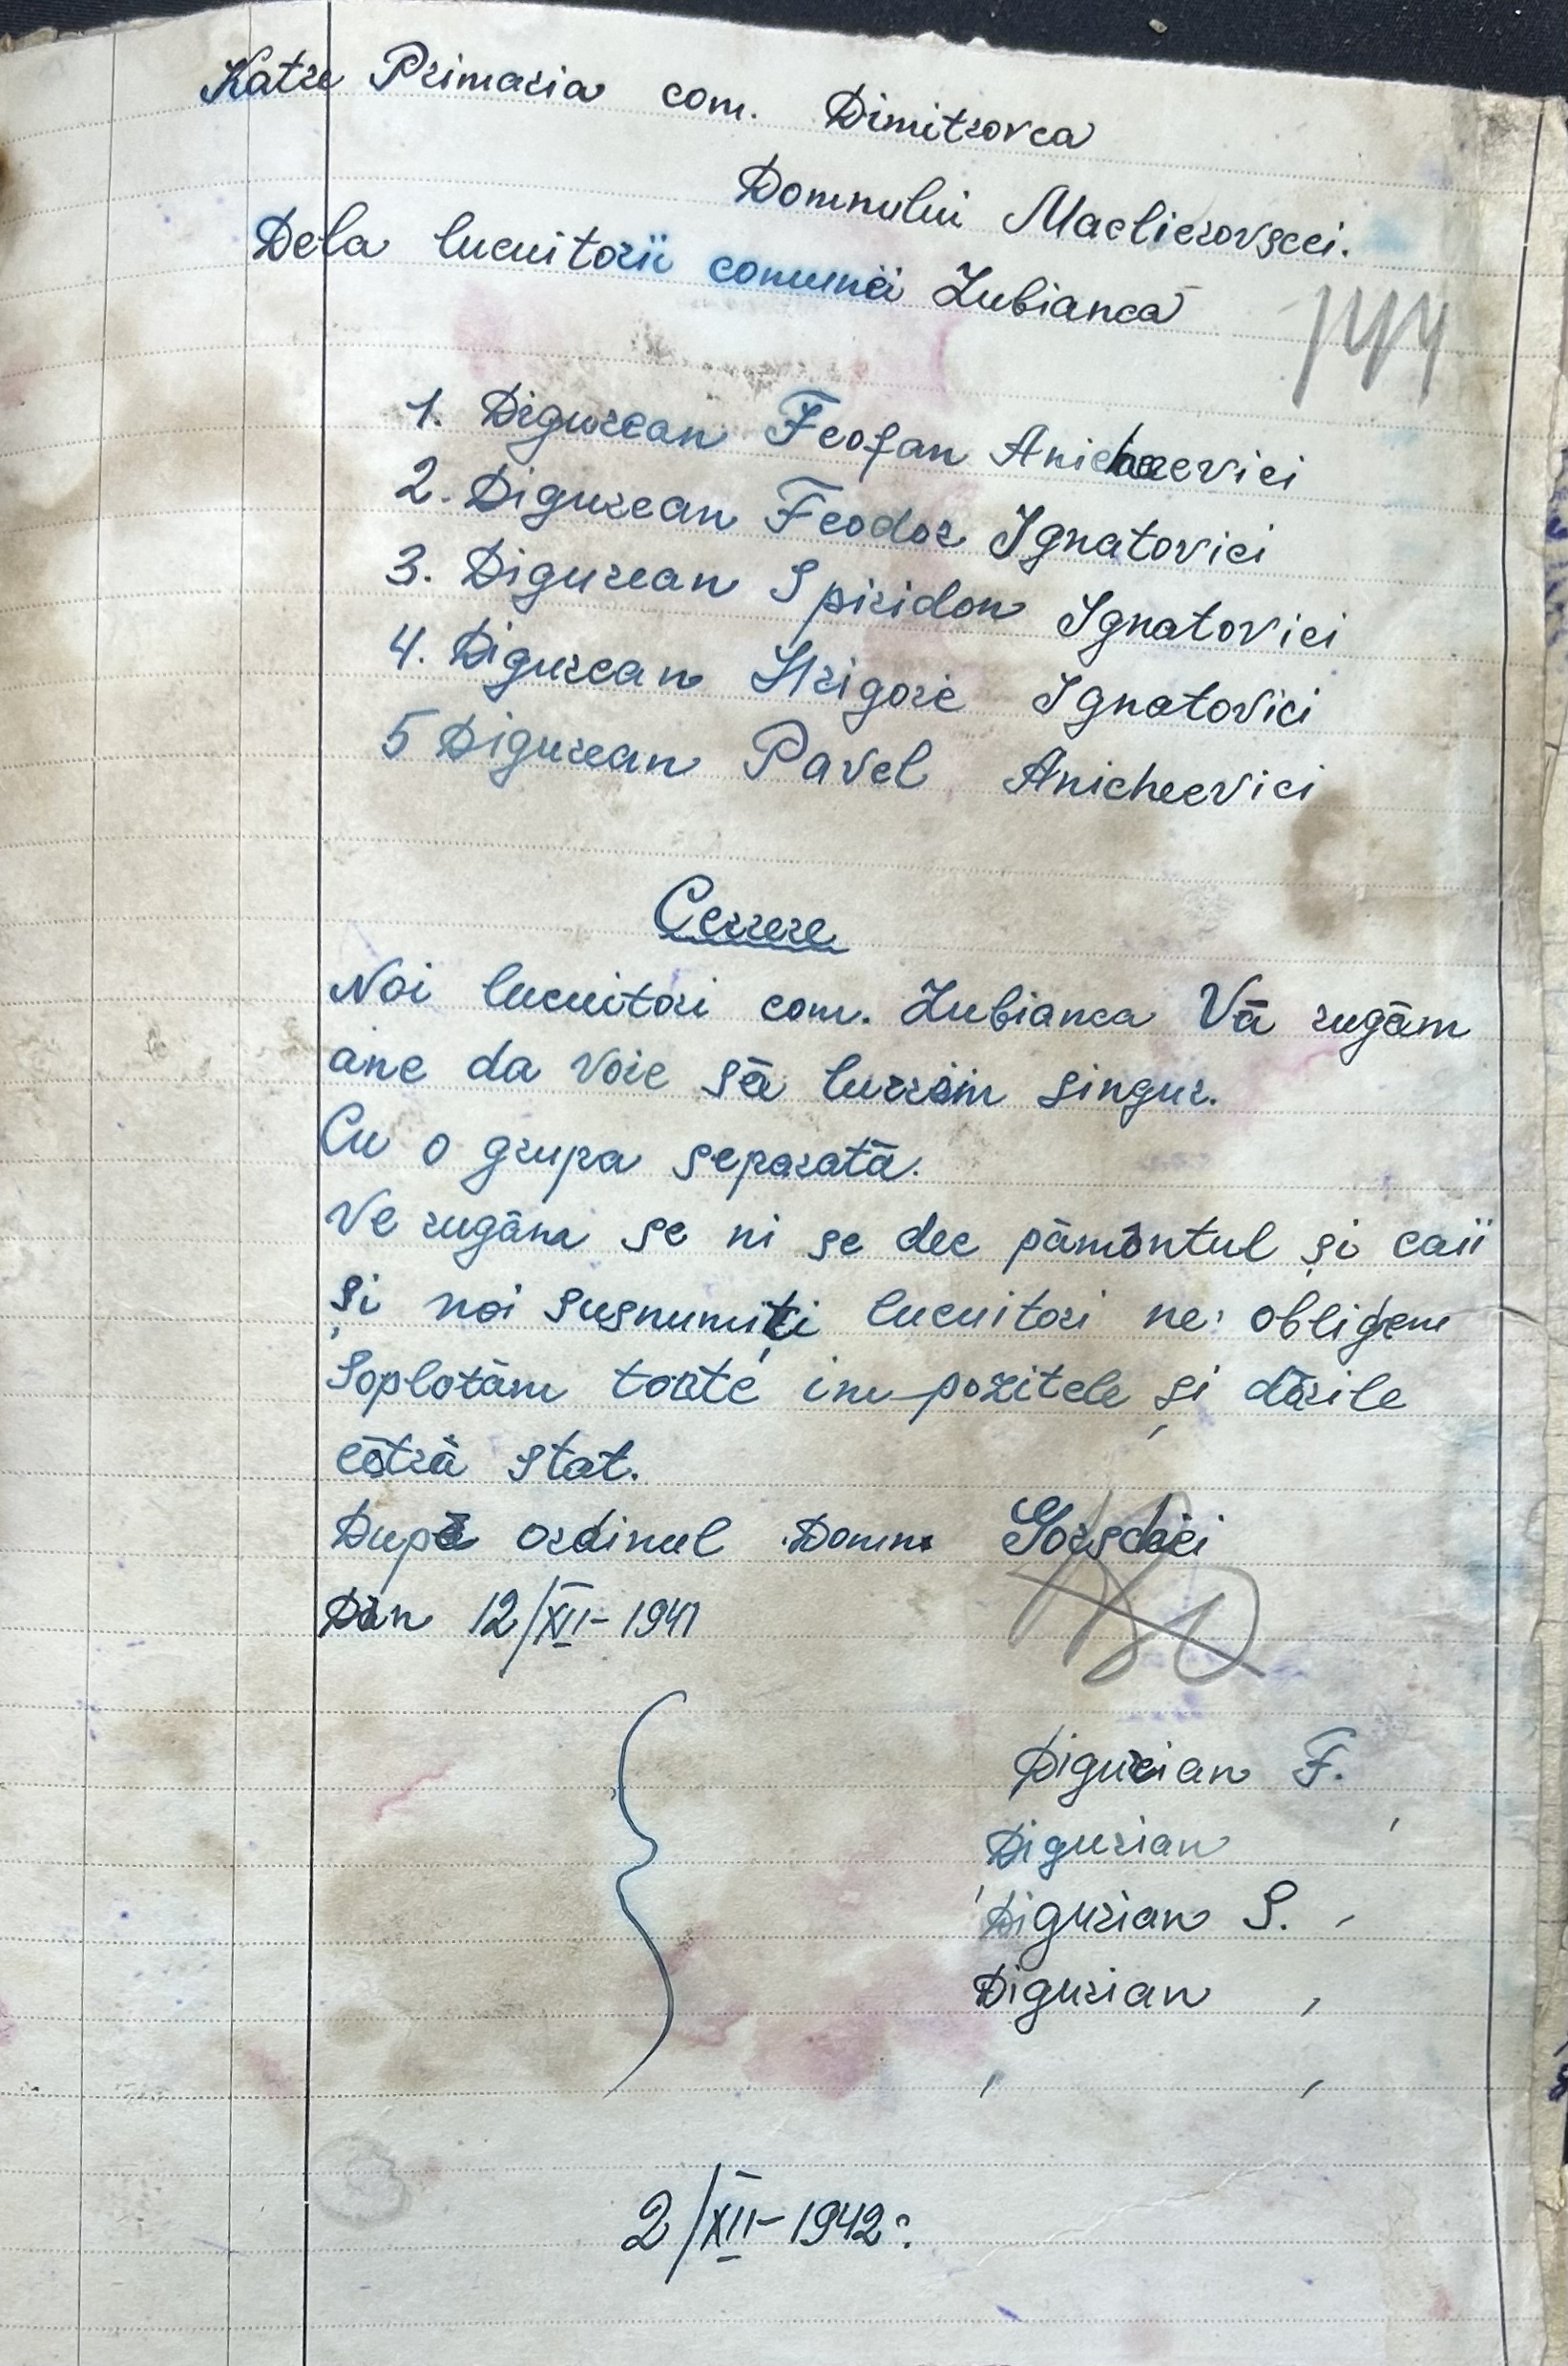 Katre Primaria com. Dimitrovca
Domnului Maclierovscei.
Dela lucuitorii comunei Lubianca
144
1. Digurean Feofan Anicheevici
2. Digurean Feodor Ignatovici
3. Digurean Spiridon Ignatovici
4. Digurean Grigore Ignatovici
5 Digurean Pavel Anicheevici
Cerrere
Noi lucuitori com. Lubianca Vă rugăm
ane da voie să lucrăm singur.
Cu o grupa separată.
Ve rugăm se ni se dee pământul și caii
și noi susnumiți lucuitori ne obligem
Soplotăm toate impozitele și dările
cătră stat.
După ordinul Domn.
Din 12/XII-1941
Digurian F.
Digurian
Digurian S.
Digurian
2/XII-1942.